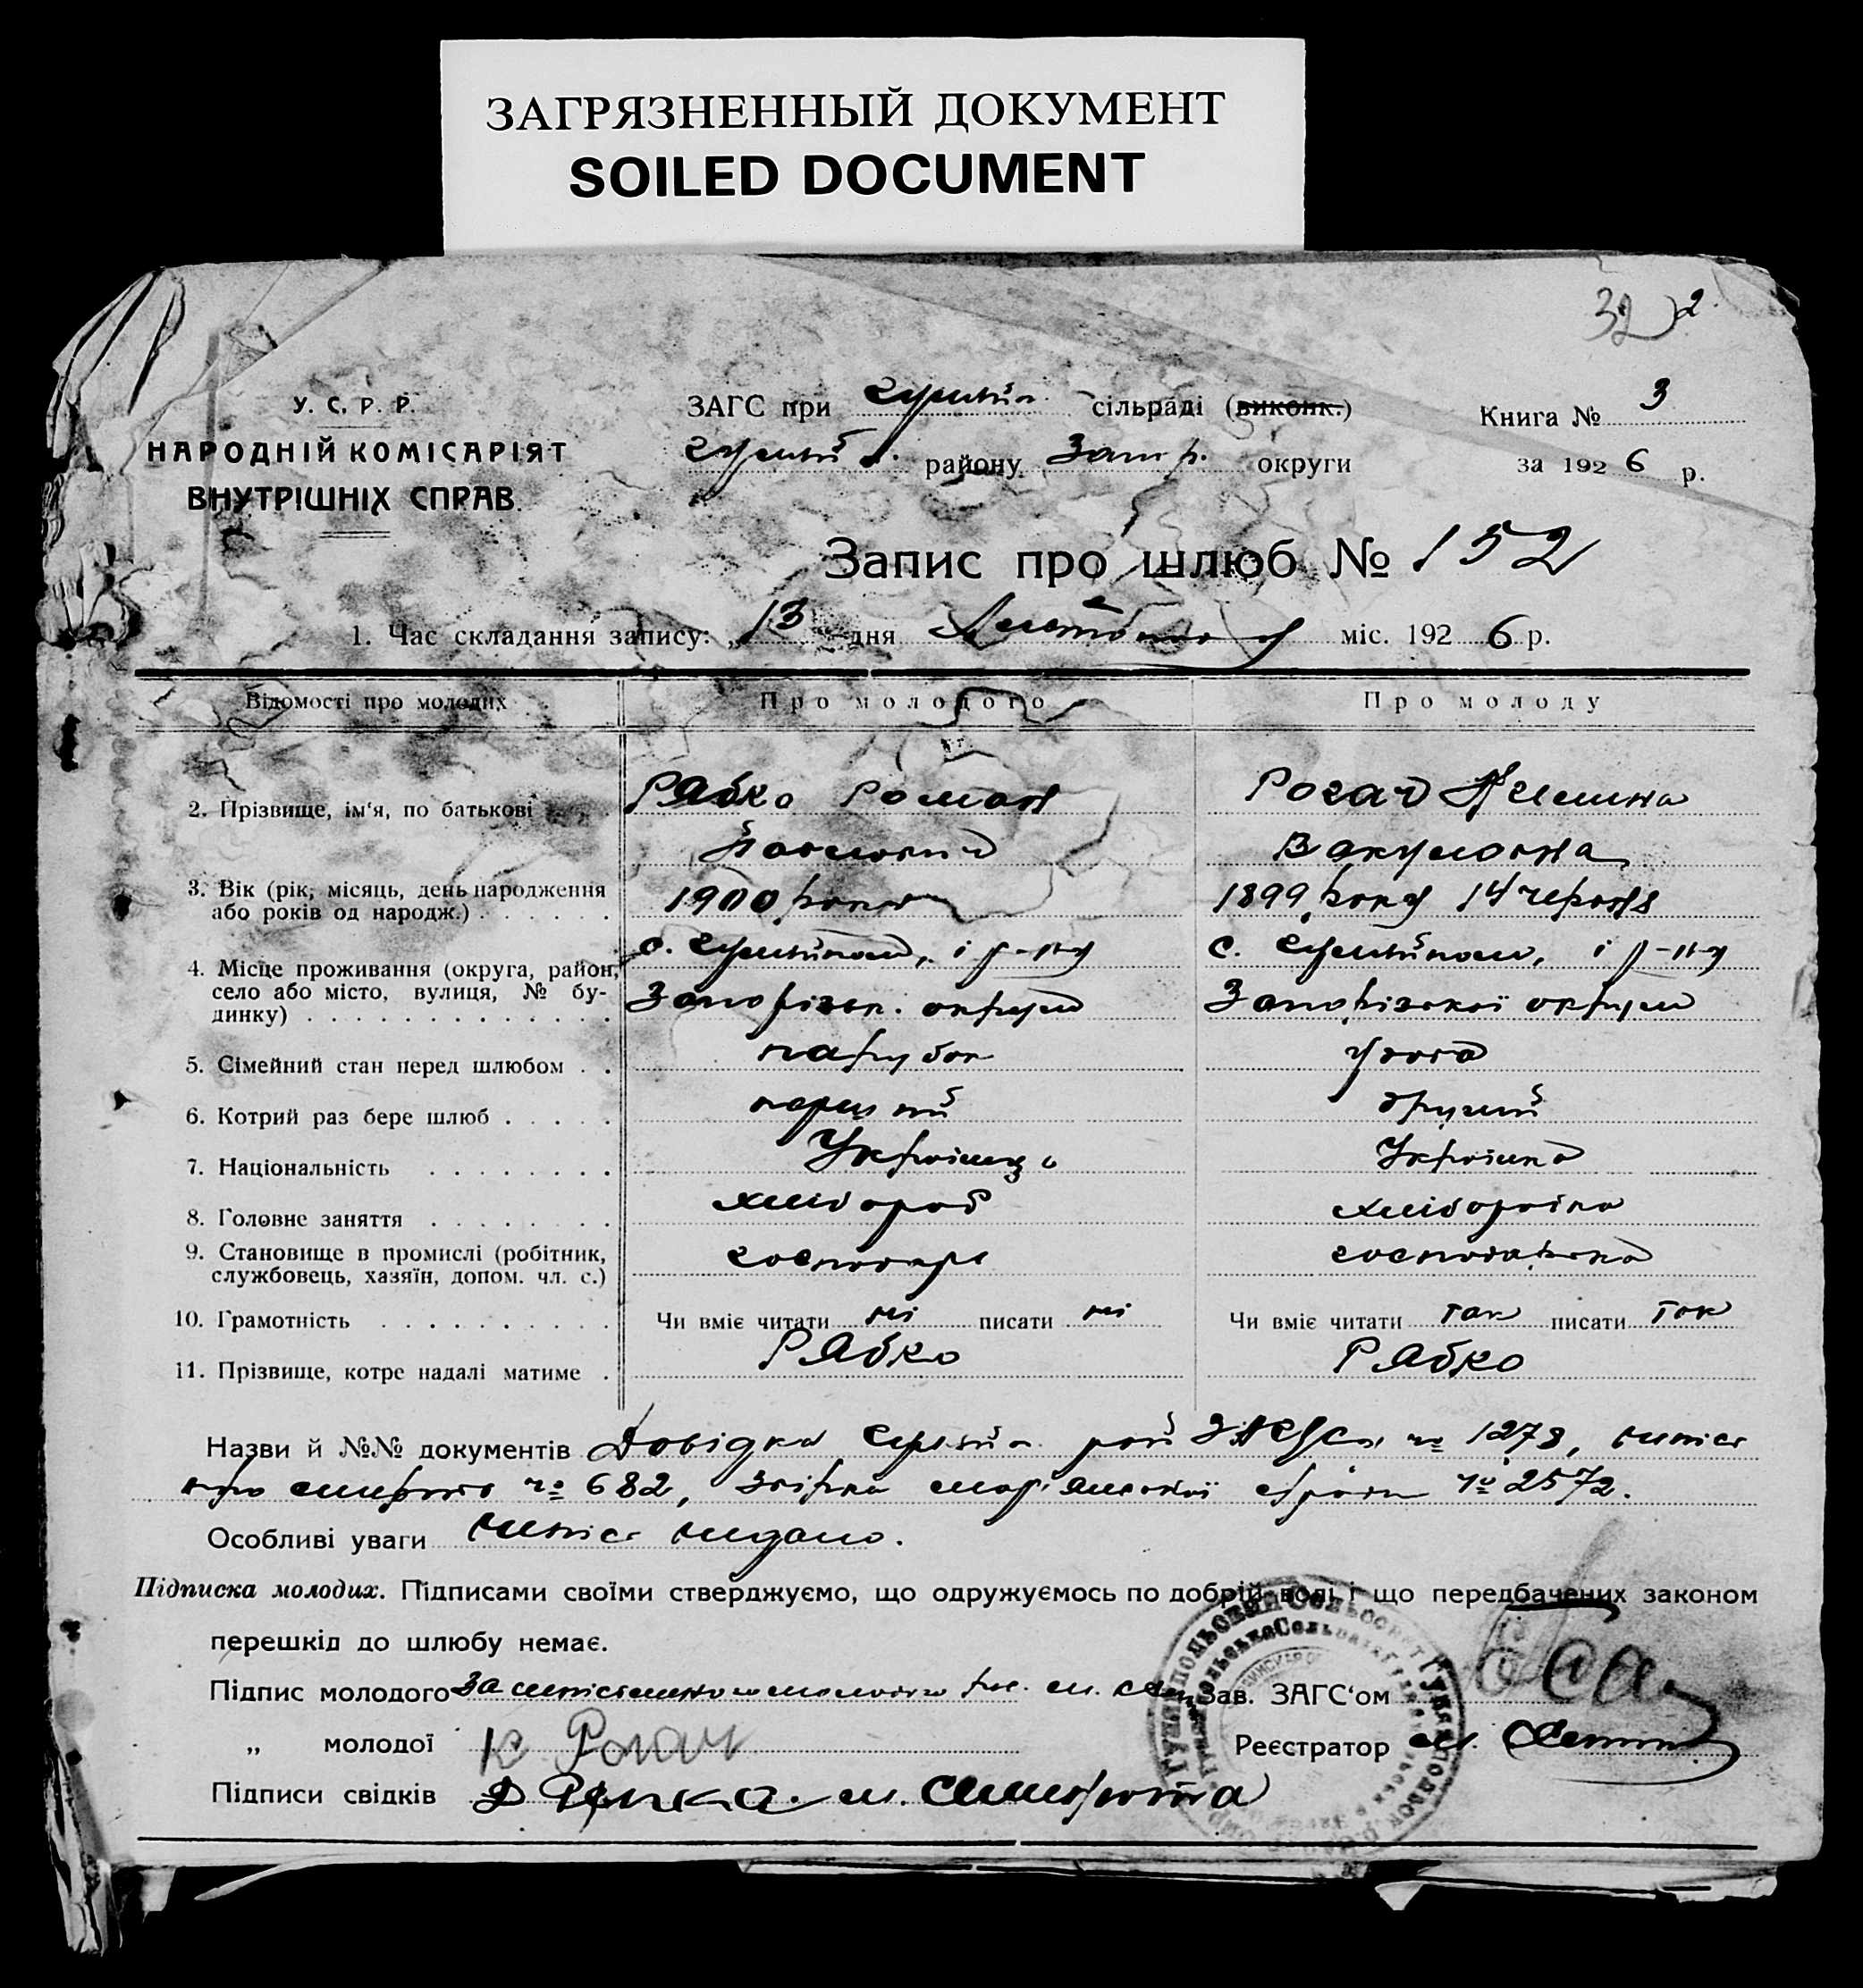 ЗАГРЯЗНЕННЫЙ ДОКУМЕНТ
SOILED DOCUMENT
32 2
У. С. Р. Р.
НАРОДНІЙ КОМІСАРІЯТ
ВНУТРІШНІХ СПРАВ.
ЗАГС при сільраді (виконк.)
району Запр. округи
Книга № 3
за 1926 р.
Запис про шлюб № 152
1. Час складання запису: „13 дня Листопада міс. 1926 р.
Відомості про молодих Про молодого Про молоду
2. Прізвище, ім'я, по батькові Рябко Роман Рогач
Павлович Вакуловна
3. Вік (рік, місяць, день народження 1900 року 1899 року 14 червня
або років од народж.)
4. Місце проживання (округа, район, с. і р-ну с. і р-ну
село або місто, вулиця, № бу- Запорізьк. округи Запорізької округи
динку)
5. Сімейний стан перед шлюбом парубок удова
6. Котрий раз бере шлюб перший другий
7. Національність Українець Українка
8. Головне заняття хлібороб хліборобка
9. Становище в промислі (робітник, господарь господарка
службовець, хазяїн, допом. чл. с.)
10. Грамотність Чи вміє читати ні писати ні Чи вміє читати так писати так
11. Прізвище, котре надалі матиме Рябко Рябко
Назви й №№ документів Довідка рай ЗАГСа № 1278, випис
про смерть № 682, № 2572.
Особливі уваги Випис видано.
Підписка молодих. Підписами своїми стверджуємо, що одружуємось по добрій волі і що передбачених законом
перешкід до шлюбу немає.
Підпис молодого За Зав. ЗАГС'ом
„ молодої Рогач Реєстратор
Підписи свідків